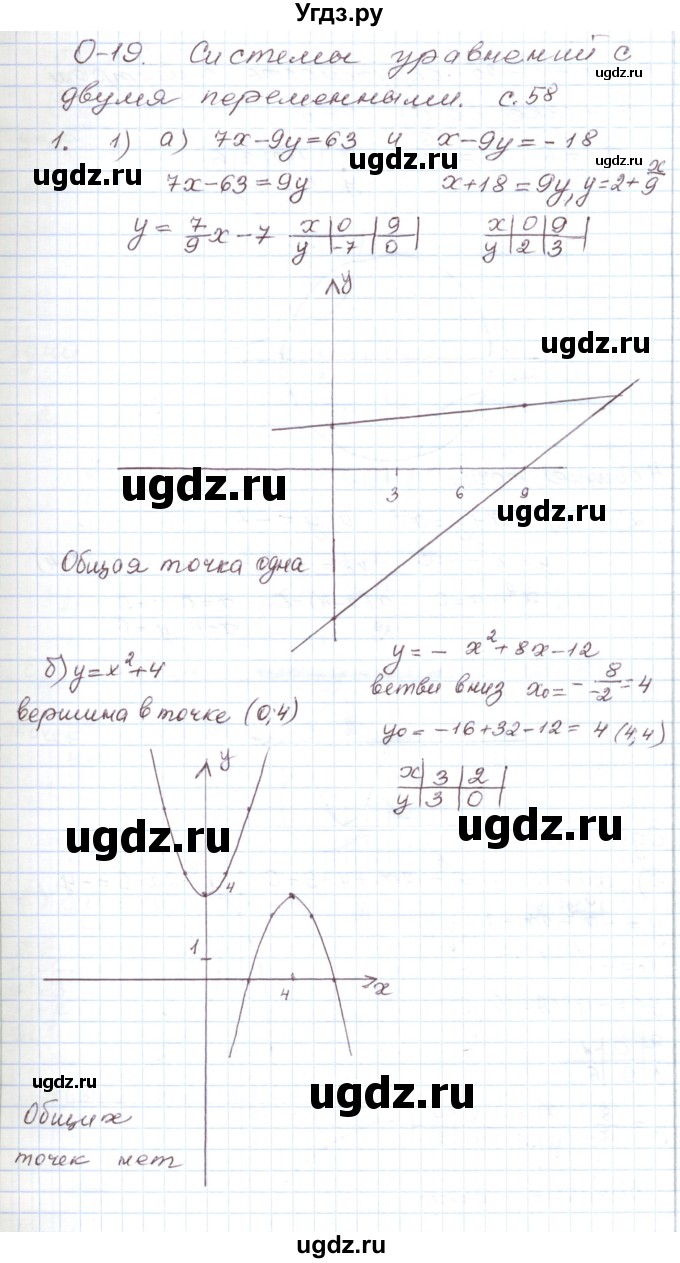 Угдз.ру
О-19. Системы уравнений с
ugdz.ru
двумя переменными. с.58
1. 1) а) 7x-9y=63 и x-9y=-18
ugdz.ru ugdz.ru ugdz.ru
7x-63=9y x+18=9y, y=2+x/9
y=7/9x-7 x|0|9| x|0|9|
y|-7|0| y|2|3|
y
ugdz.ru
ugdz.ru
3 6 9
ugdz.ru
Общая точка одна
б) y=x²+4 y=-x²+8x-12
ветви вниз x₀=-8/-2=4
вершина в точке (0;4)
y₀=-16+32-12=4 (4;4)
y
x|3|2|
y|3|0|
ugdz.ru ugdz.ru
4
1
4 x
ugdz.ru
ugdz.ru
Общих
точек нет
ugdz.ru